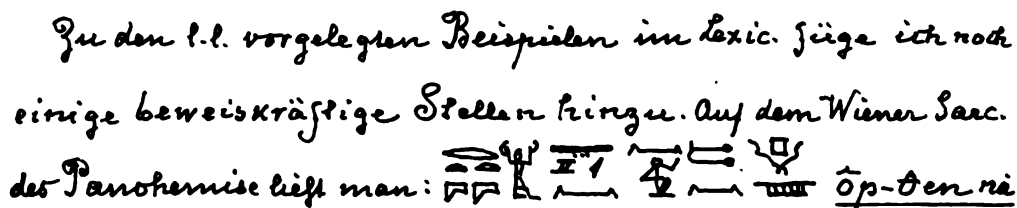 Zu den l.l. vorgelegten Beispielen im Lexic. füge ich noch
einige beweiskräftige Stellen hinzu. Auf dem Wiener Sarc.
des Panehemise ließt man: ôp-ten nà